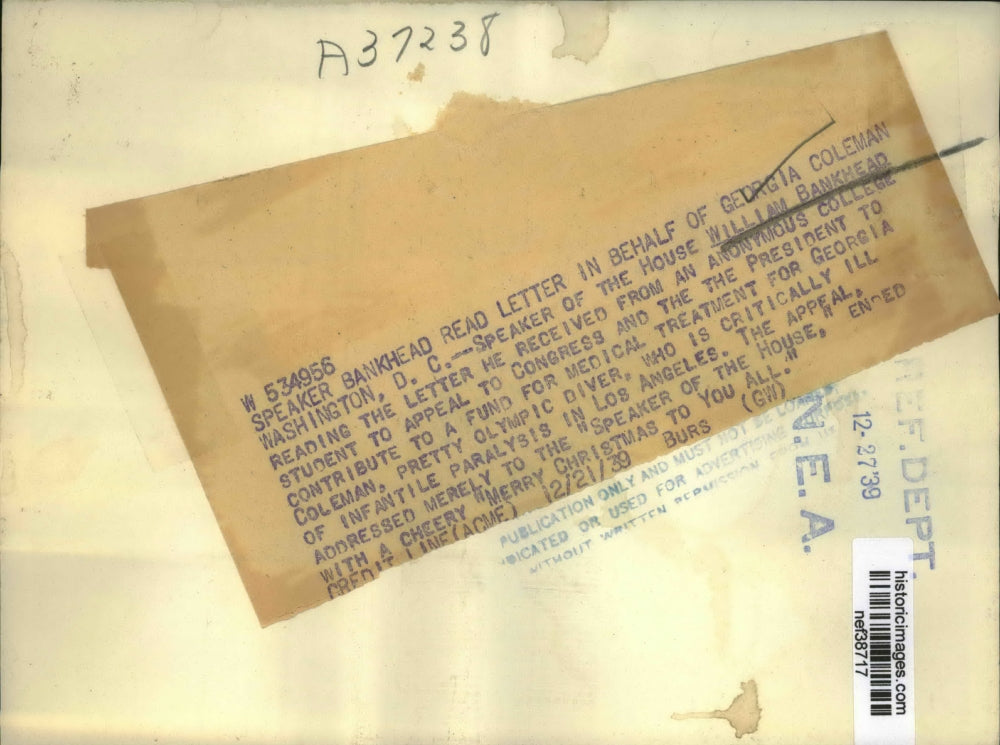 A37238
W 534956
SPEAKER BANKHEAD READ LETTER IN BEHALF OF GEORGIA COLEMAN
WASHINGTON, D. C.--SPEAKER OF THE HOUSE WILLIAM BANKHEAD
READING THE LETTER HE RECEIVED FROM AN ANONYMOUS COLLEGE
STUDENT TO APPEAL TO CONGRESS AND THE THE PRESIDENT TO
CONTRIBUTE TO A FUND FOR MEDICAL TREATMENT FOR GEORGIA
COLEMAN, PRETTY OLYMPIC DIVER, WHO IS CRITICALLY ILL
OF INFANTILE PARALYSIS IN LOS ANGELES. THE APPEAL,
ADDRESSED MERELY TO THE "SPEAKER OF THE HOUSE," ENDED
WITH A CHEERY "MERRY CHRISTMAS TO YOU ALL."
CREDIT LINE(ACME) 12/21/39 BURS (GW)
PUBLICATION ONLY AND MUST NOT BE
OR USED FOR ADVERTISING
WITHOUT WRITTEN PERMISSION
N.E.A.
12-27'39
REF. DEPT.
historicimages.com
nef38717